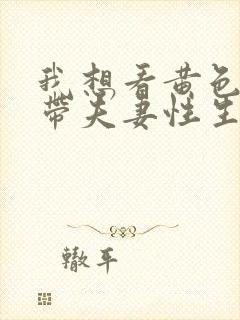 我想看黄色
带夫妻性生
辙平